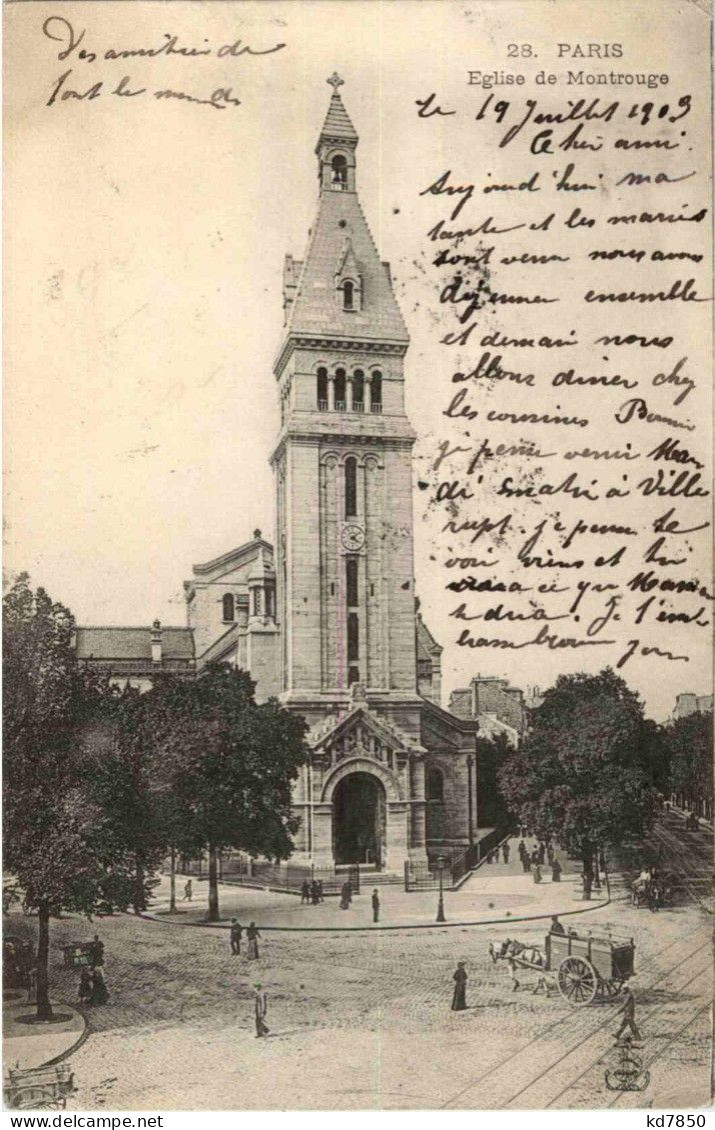 Des amitiés de
tout le monde
28. PARIS
Eglise de Montrouge
Le 19 Juillet 1903
Cher ami.
Aujourd'hui ma
tante et les mariés
sont venu nous avons
déjeunner ensemble
et demain nous
allons diner chez
les cousines
je pense venir Mar
di matin à Ville
rupt. je pense te
voir viens et tu
ce que Maman
dira. Je t'em
brasse bien fort
kd7850